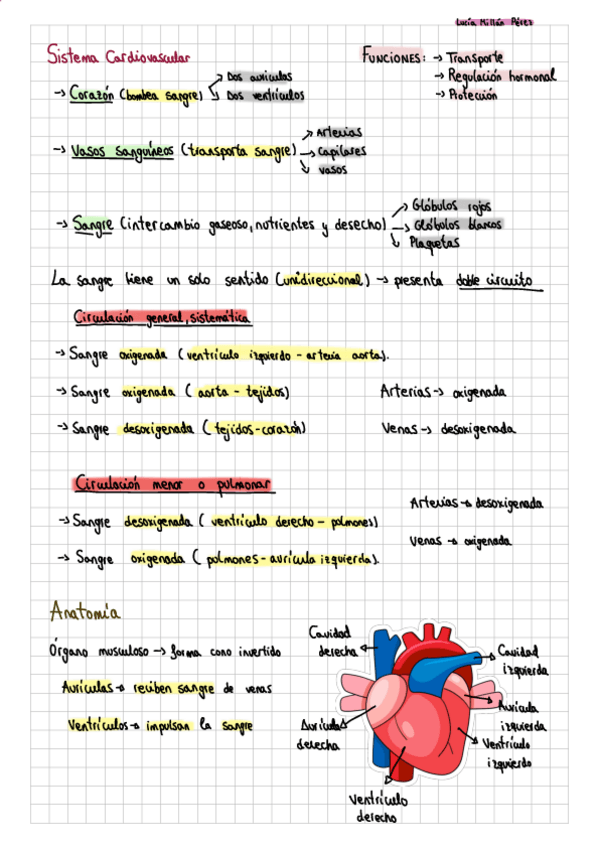 Lucía Millán Pérez
Sistema Cardiovascular
FUNCIONES: → Transporte
→ Regulación hormonal
→ Protección
→ Corazón (bombea sangre)
Dos aurículas
Dos ventrículos
→ Vasos sanguíneos (transporta sangre)
Arterias
Capilares
vasos
→ Sangre (intercambio gaseoso, nutrientes y desecho)
Glóbulos rojos
Glóbulos blancos
Plaquetas
La sangre tiene un solo sentido (unidireccional) → presenta doble circuito
Circulación general, sistemática
→ Sangre oxigenada (ventrículo izquierdo - arteria aorta).
→ Sangre oxigenada (aorta - tejidos)
→ Sangre desoxigenada (tejidos - corazón)
Arterias → oxigenada
Venas → desoxigenada
Circulación menor o pulmonar
→ Sangre desoxigenada (ventrículo derecho - pulmones)
→ Sangre oxigenada (pulmones - aurícula izquierda).
Arterias → desoxigenada
Venas → oxigenada
Anatomía
Órgano musculoso → forma cono invertido
Aurículas → reciben sangre de venas
Ventrículos → impulsan la sangre
Cavidad
derecha
Cavidad
izquierda
Aurícula
derecha
Aurícula
izquierda
Ventrículo
izquierdo
Ventrículo
derecho